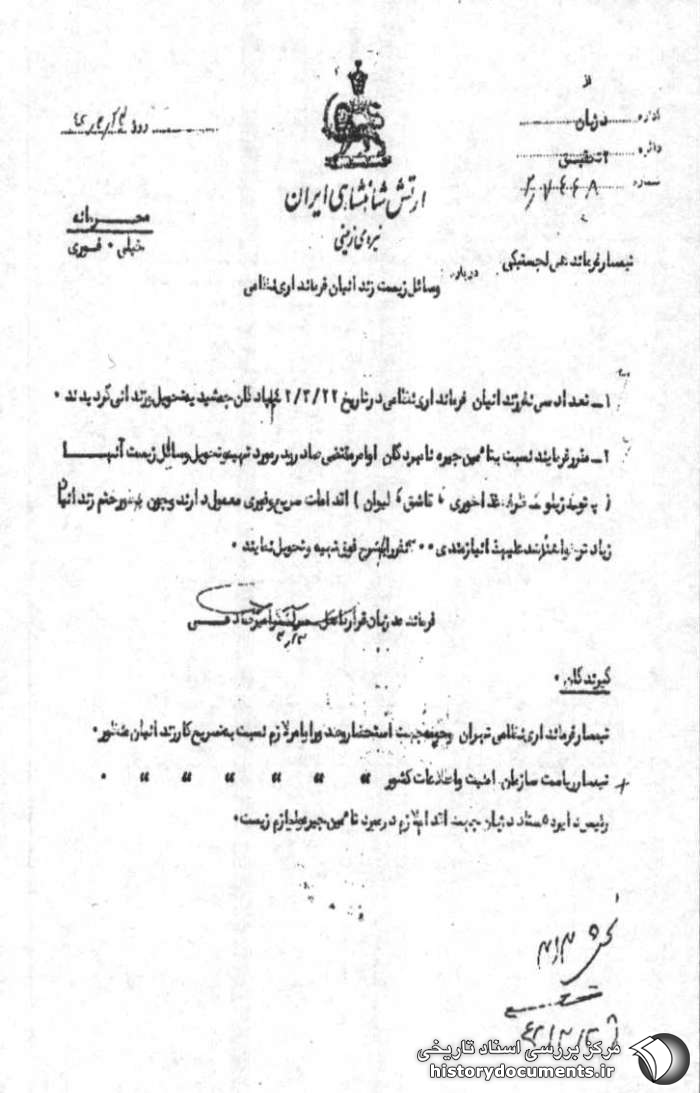 از
اداره دژبان
دائره ۲ تحقیق
شماره ۲۰۷۴۶۰۸
روز
ارتش شاهنشاهی ایران
نیروی زمینی
محرمانه
خیلی فوری
تیمسار فرماندهی لجستیکی
درباره وسائل زیست زندانیان فرمانداری نظامی
۱ــ تعداد سی نفر زندانیان فرمانداری نظامی در تاریخ ۴۲/۳/۲۲ پادگان جمشیدیه تحویل و زندانی گردیدند ۰
۲ــ مقرر فرمایند نسبت به تامین جیره نامبردگان اوامر مقتضی صادر و در مورد تهیه و تحویل وسائل زیست آنها
( پتو زیلو غذاخوری قاشق لیوان ) اقدامات سریع و فوری معمول دارند و چون زندانیان
زیاد خواهند شد علیهذا نیازمندی ۳۰۰ نفر را بشرح فوق تهیه و تحویل نمایند ۰
فرمانده دژبان
گیرندگان ۰
تیمسار فرمانداری نظامی تهران جهت استحضار و صدور اوامر لازم نسبت به تسریع کار زندانیان منظور ۰
تیمسار ریاست سازمان امنیت و اطلاعات کشور " " " " " " ۰
رئیس دایره ستاد دژبان جهت اقدام لازم در مورد تامین جیره و لوازم زیست ۰
مرکز بررسی اسناد تاریخی
historydocuments.ir